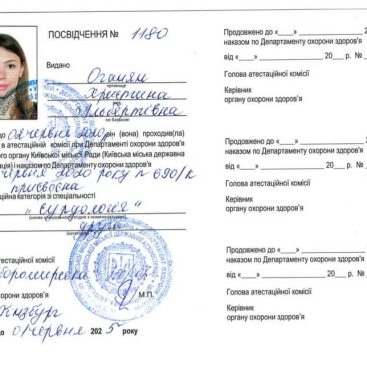 ПОСВІДЧЕННЯ № 1180
Видано Оганян
прізвище
Христина
Альбертівна
по батькові
що 02 червня 2020 р. він (вона) проходив(ла)
в атестаційній комісії при Департаменті охорони здоров'я
ого органу Київської міської Ради (Київська міська державна
ція) і наказом по Департаменту охорони здоров'я
червня 2020 року № 690/к
присвоєна
ційна категорія зі спеціальності
"сурдологія"
друга
(категорія)
ої атестаційної комісії
М.П.
охорони здоров'я
Гінзбург
до 01 червня 2025 року
Продовжено до «____» ____________ 20___ р.
наказом по Департаменту охорони здоров'я
від «____» ____________ 20___ р. №
Голова атестаційної комісії
Керівник
органу охорони здоров'я
Продовжено до «____» ____________ 20___ р.
наказом по Департаменту охорони здоров'я
від «____» ____________ 20___ р. №
Голова атестаційної комісії
Керівник
органу охорони здоров'я
Продовжено до «____» ____________ 20___ р.
наказом по Департаменту охорони здоров'я
від «____» ____________ 20___ р. №
Голова атестаційної комісії
Керівник
органу охорони здоров'я